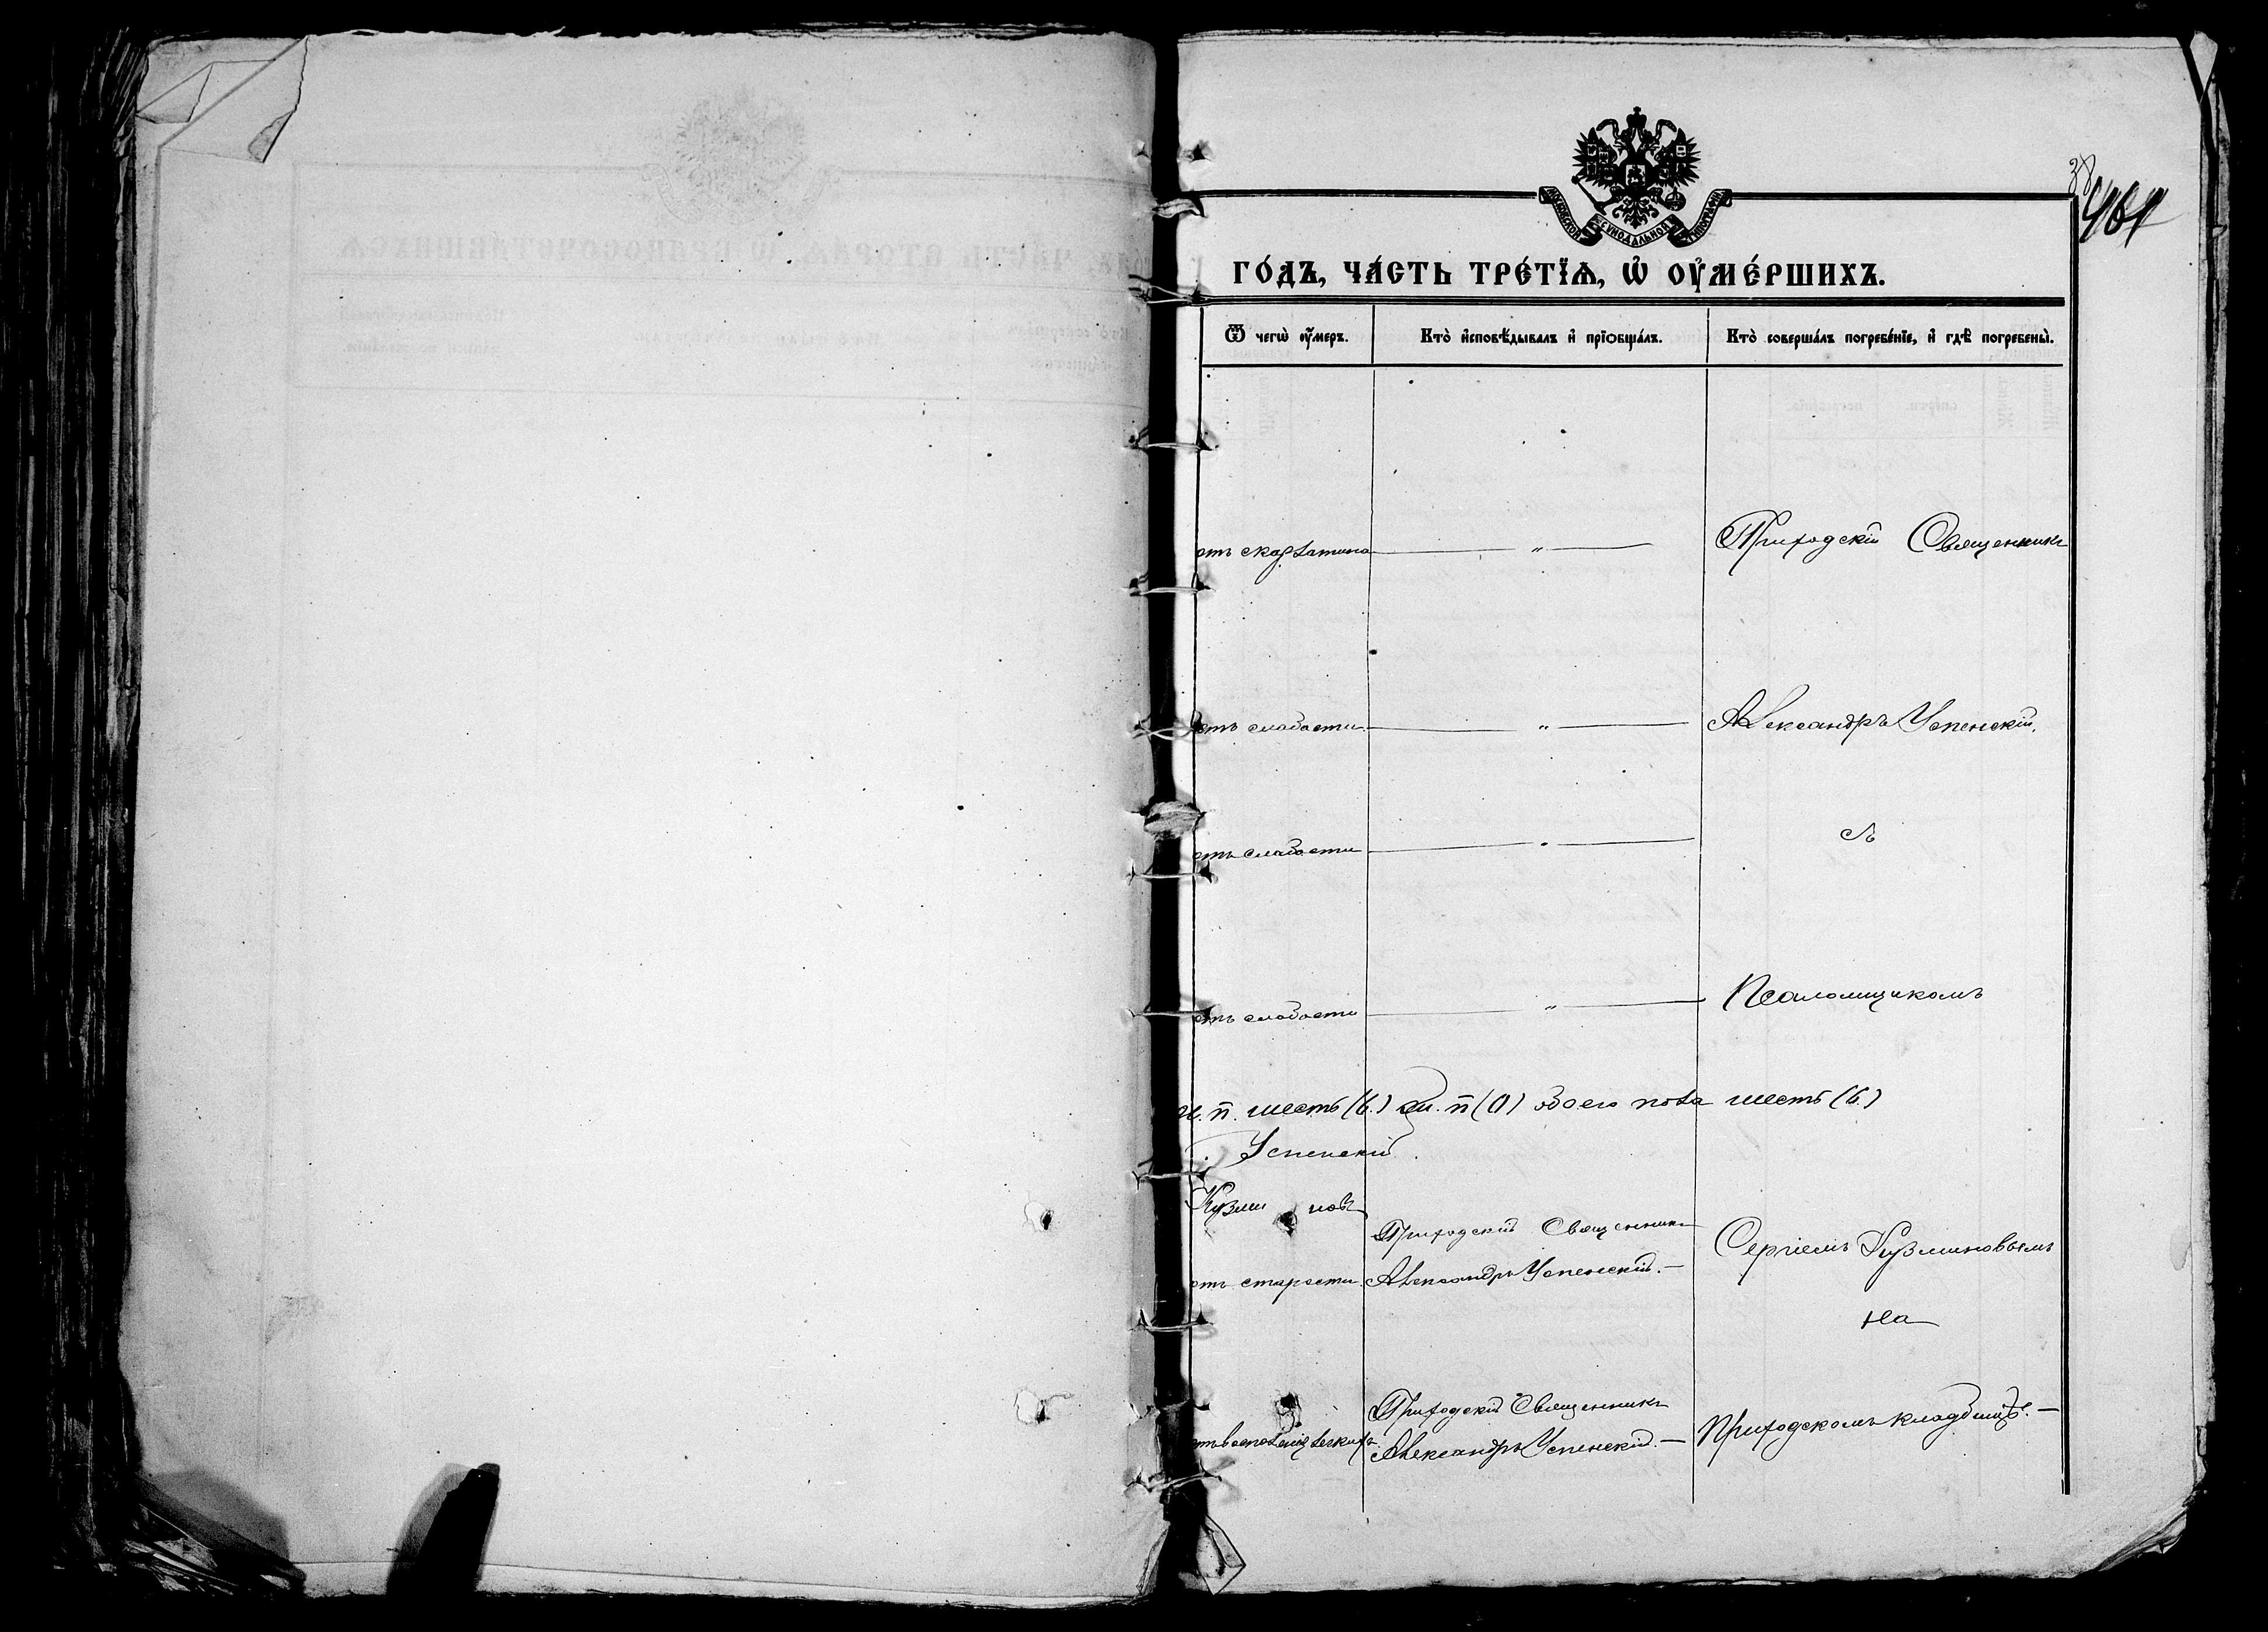 МОСКОВСКОЙ СѴНОДАЛЬНОЙ ТИПОГРАФІИ
401
ГО́ДЪ, ЧА́СТЬ ТРЕ́ТЇѦ, Ѡ҆ ОУ҆МЕ́РШИХЪ.
Ѿ чегѡ̀ оу҆́меръ.
Кто̀ и҆сповѣ́дывалъ и҆ прїобща́лъ.
Кто̀ соверша́лъ погребе́нїе, и҆ гдѣ̀ погребены̀.
отъ скарлатина — " — Приходскій Священникъ
отъ слабости — " — Александръ Успенскій.
отъ слабости — " — съ
отъ слабости — " — Псаломщикомъ
м. п. шесть (6.) ж. п (0) обоего пола шесть (6.)
Успенскій.
Кузминовъ
Приходскій Священникъ
отъ старости. Александръ Успенскій. —
Сергіемъ Кузминовымъ
на
Приходскій Священникъ
Александръ Успенскій. —
Приходскомъ кладбищѣ. —